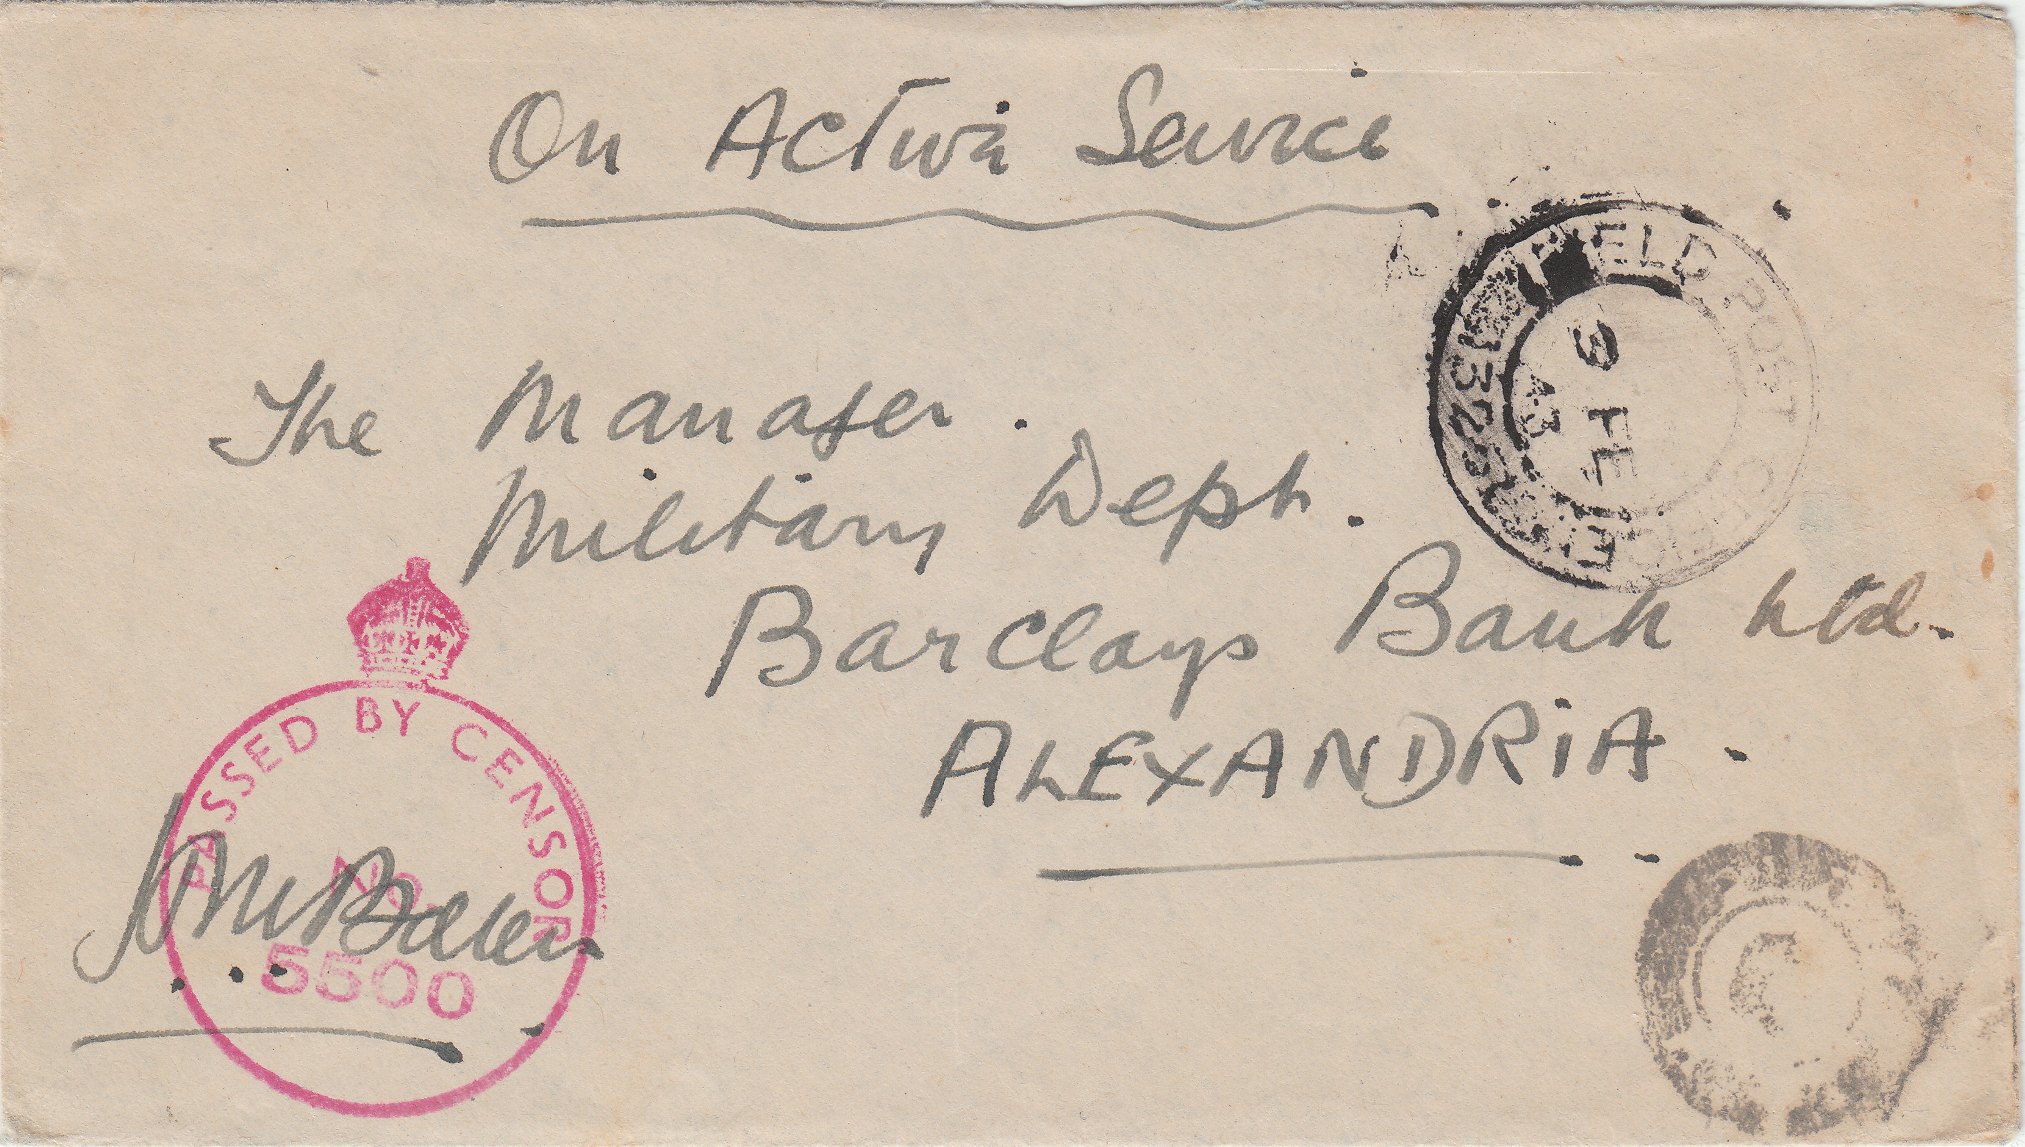 On Active Service
FIELD POST OFFICE
132
9 FE
43
The Manager.
Military Dept.
Barclays Bank Ltd.
ALEXANDRIA.
PASSED BY CENSOR
No.
5500